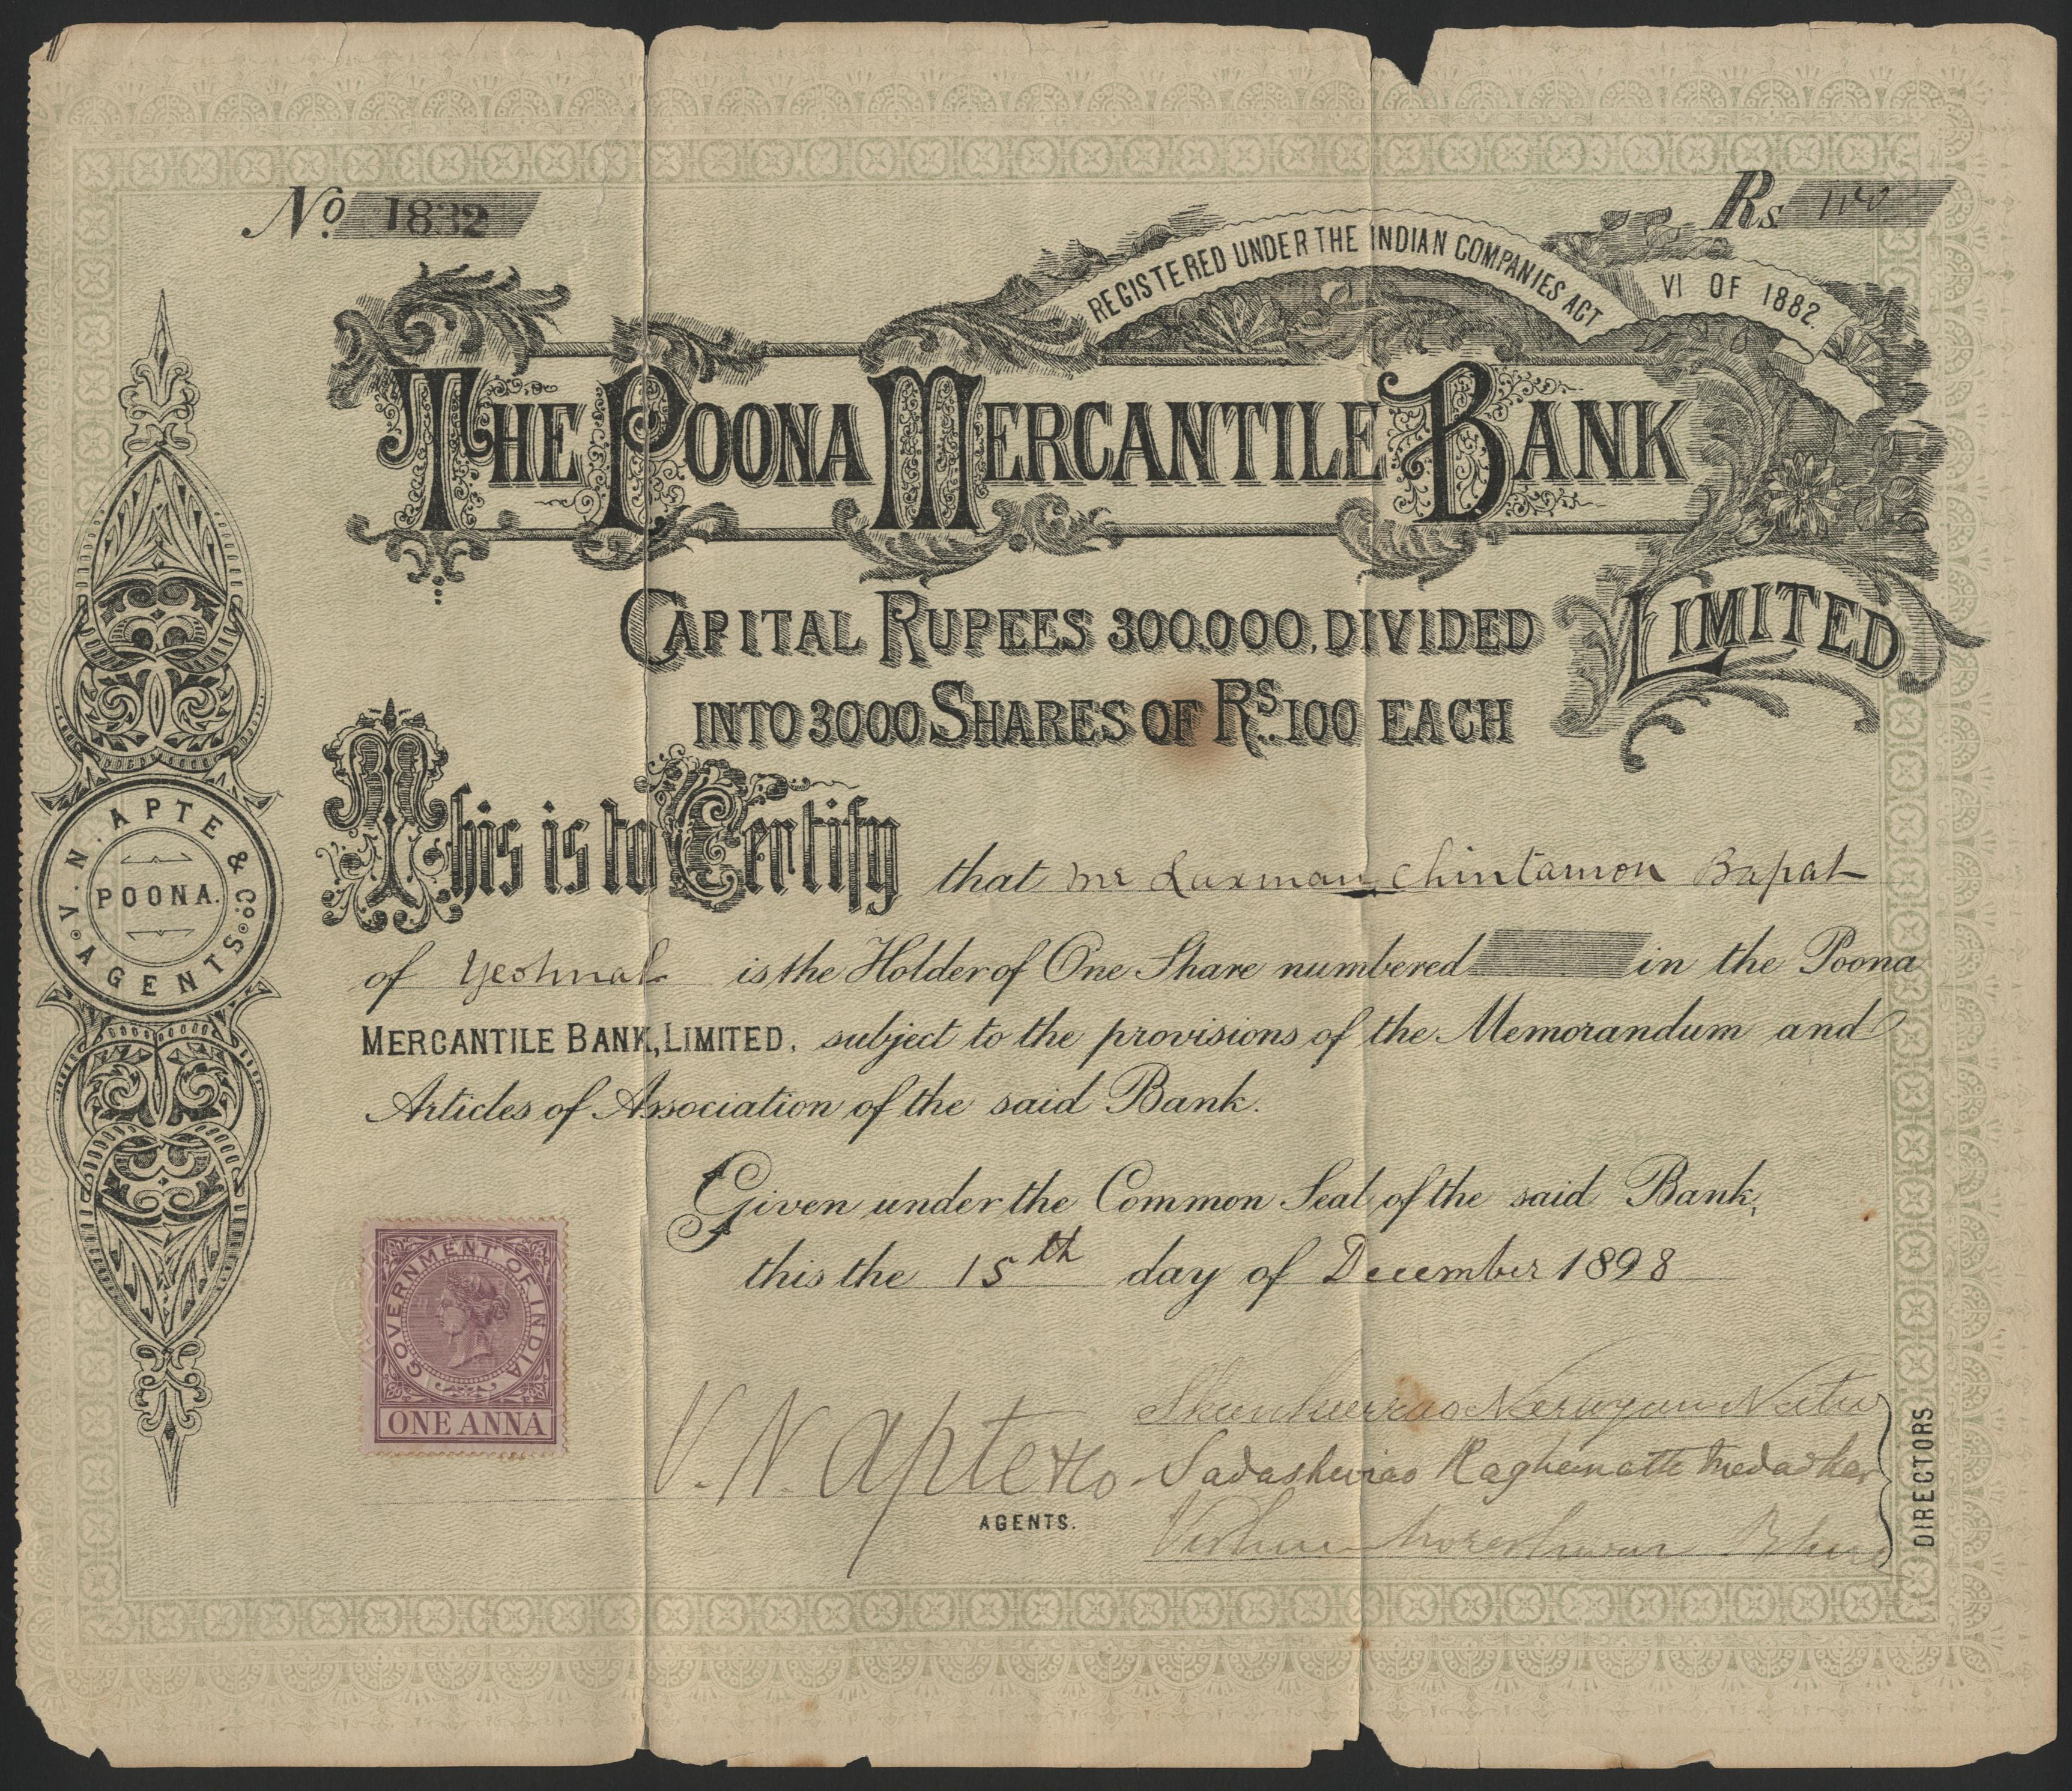 No. 1832
Rs. 100
REGISTERED UNDER THE INDIAN COMPANIES ACT VI OF 1882.
THE POONA MERCANTILE BANK
LIMITED
CAPITAL RUPEES 300.000, DIVIDED
INTO 3000 SHARES OF RS. 100 EACH
This is to Certify that Mr Laxman Chintamon Bapat
of is the Holder of One Share numbered in the Poona
MERCANTILE BANK, LIMITED, subject to the provisions of the Memorandum and
Articles of Association of the said Bank.
Given under the Common Seal of the said Bank,
this the 15th day of December 1898
V. N. APTE & Co.
POONA.
AGENTS
GOVERNMENT OF INDIA
ONE ANNA
V. N. Apte & Co
AGENTS.
Narayan Natu
Sadashivrao Raghunath
Moreshwar
DIRECTORS